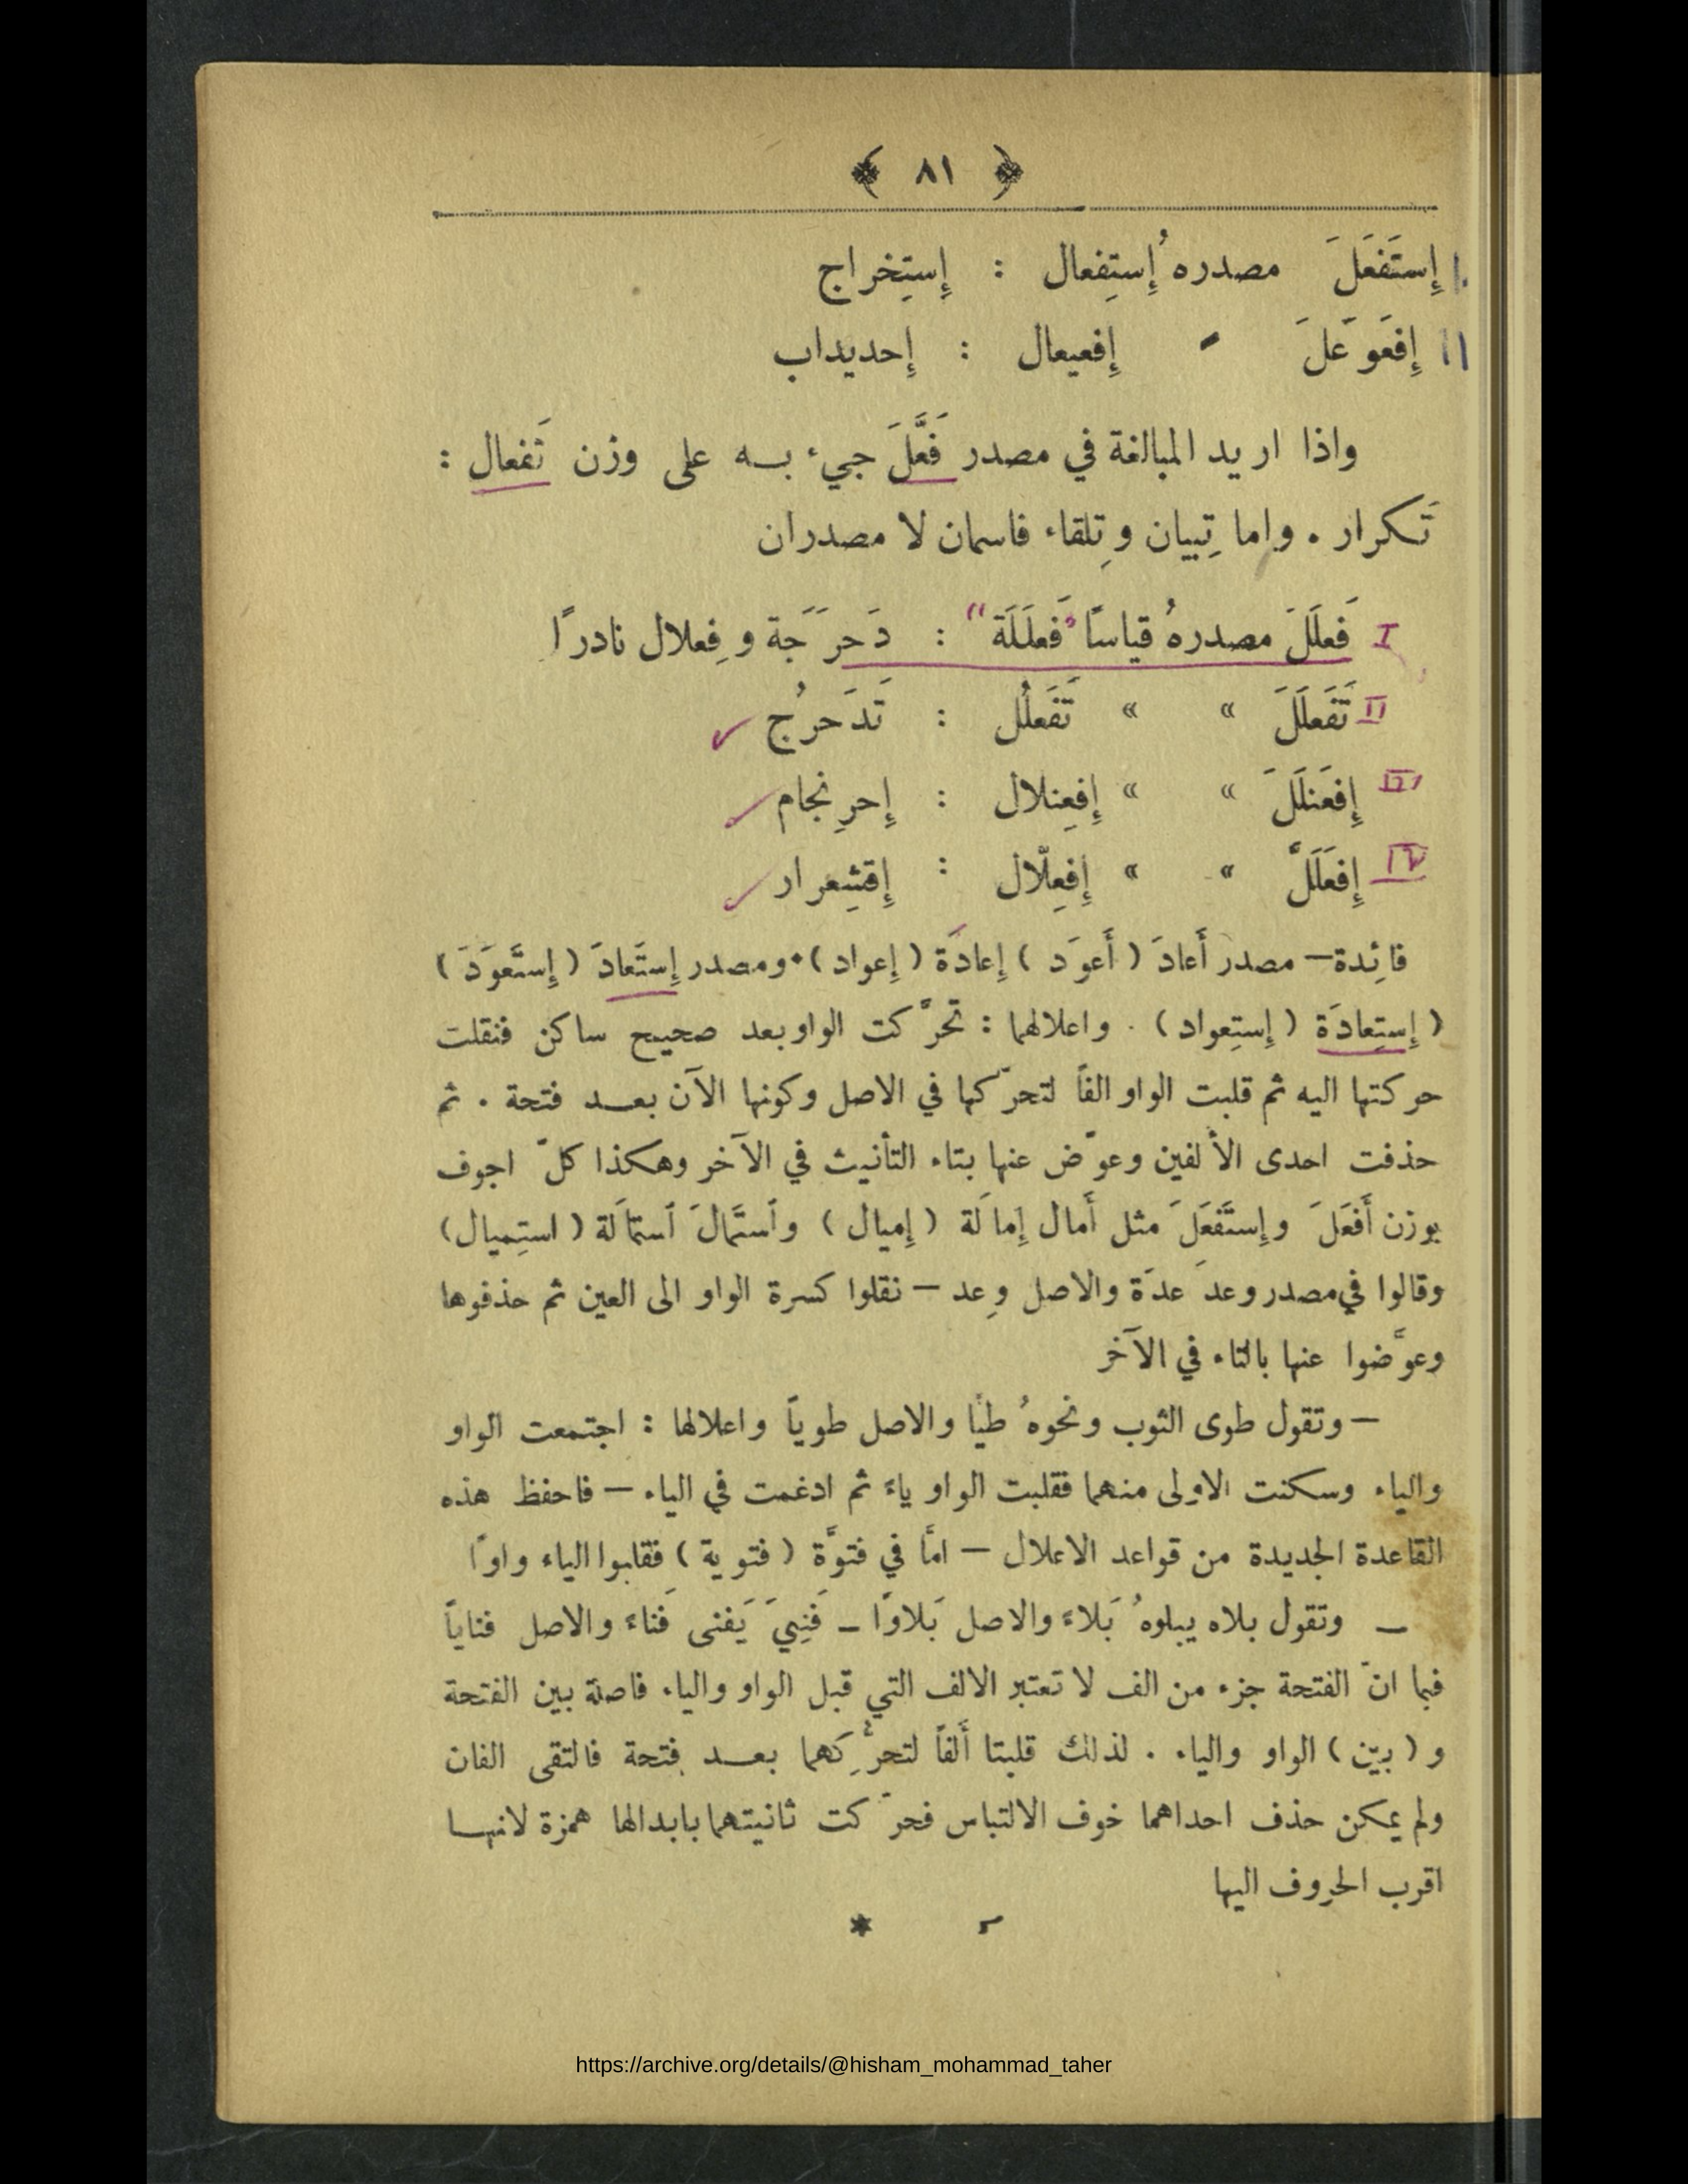 ﴿ ٨١ ﴾
١٠ إِستَفعَلَ مصدرهُ إِستِفعال : إِستِخراج
١١ إِفعَوعَلَ " إِفعيعال : إِحديداب
واذا اريد المبالغة في مصدر فَعَّلَ جيء به على وزن تَفعال :
تَكرار . واما تِبيان وتِلقاء فاسمان لا مصدران
I فَعلَلَ مصدرهُ قياسًا "فَعلَلَة" : دَحرَجَة وفِعلال نادرًا
II تَفَعلَلَ » » تَفَعلُل : تَدَحرُج ✓
III إِفعَنلَلَ » » إِفعِنلال : إِحرِنجام ✓
IV إِفعَلَلَّ » » إِفعِلّال : إِقشِعرار ✓
فائِدة — مصدر أَعادَ ( أَعوَد ) إِعادَة ( إِعواد ) . ومصدر إِستَعادَ ( إِستَعوَدَ )
( إِستِعادَة ( إِستِعواد ) . واعلالهما : تحرَّكت الواو بعد صحيح ساكن فنقلت
حركتها اليه ثم قلبت الواو الفاً لتحرّكها في الاصل وكونها الآن بعد فتحة . ثم
حذفت احدى الألفين وعوّض عنها بتاء التأنيث في الآخر وهكذا كلّ اجوف
بوزن أَفعَلَ وإِستَفعَلَ مثل أَمال إِمالَة ( إِميال ) وٱستَمالَ ٱستمالَة ( استِميال )
وقالوا في مصدر وعدَ عدَة والاصل وِعد — نقلوا كسرة الواو الى العين ثم حذفوها
وعوَّضوا عنها بالتاء في الآخر
— وتقول طوى الثوب ونحوهُ طيًّا والاصل طوياً واعلالها : اجتمعت الواو
والياء وسكنت الاولى منهما فقلبت الواو ياءً ثم ادغمت في الياء — فاحفظ هذه
القاعدة الجديدة من قواعد الاعلال — امَّا في فتوَّة ( فتوية ) فقلبوا الياء واوًا
— وتقول بلاه يبلوهُ بَلاءً والاصل بَلاوًا — فَنِيَ يَفنى فَناءً والاصل فناياً
فبما انّ الفتحة جزء من الف لا تعتبر الالف التي قبل الواو والياء فاصلة بين الفتحة
و ( بيّن ) الواو والياء . لذلك قلبتا أَلفاً لتحرُّكِهما بعد فتحة فالتقى الفان
ولم يمكن حذف احداهما خوف الالتباس فحرّكت ثانيتهما بابدالها همزة لانها
اقرب الحروف اليها
*
https://archive.org/details/@hisham_mohammad_taher